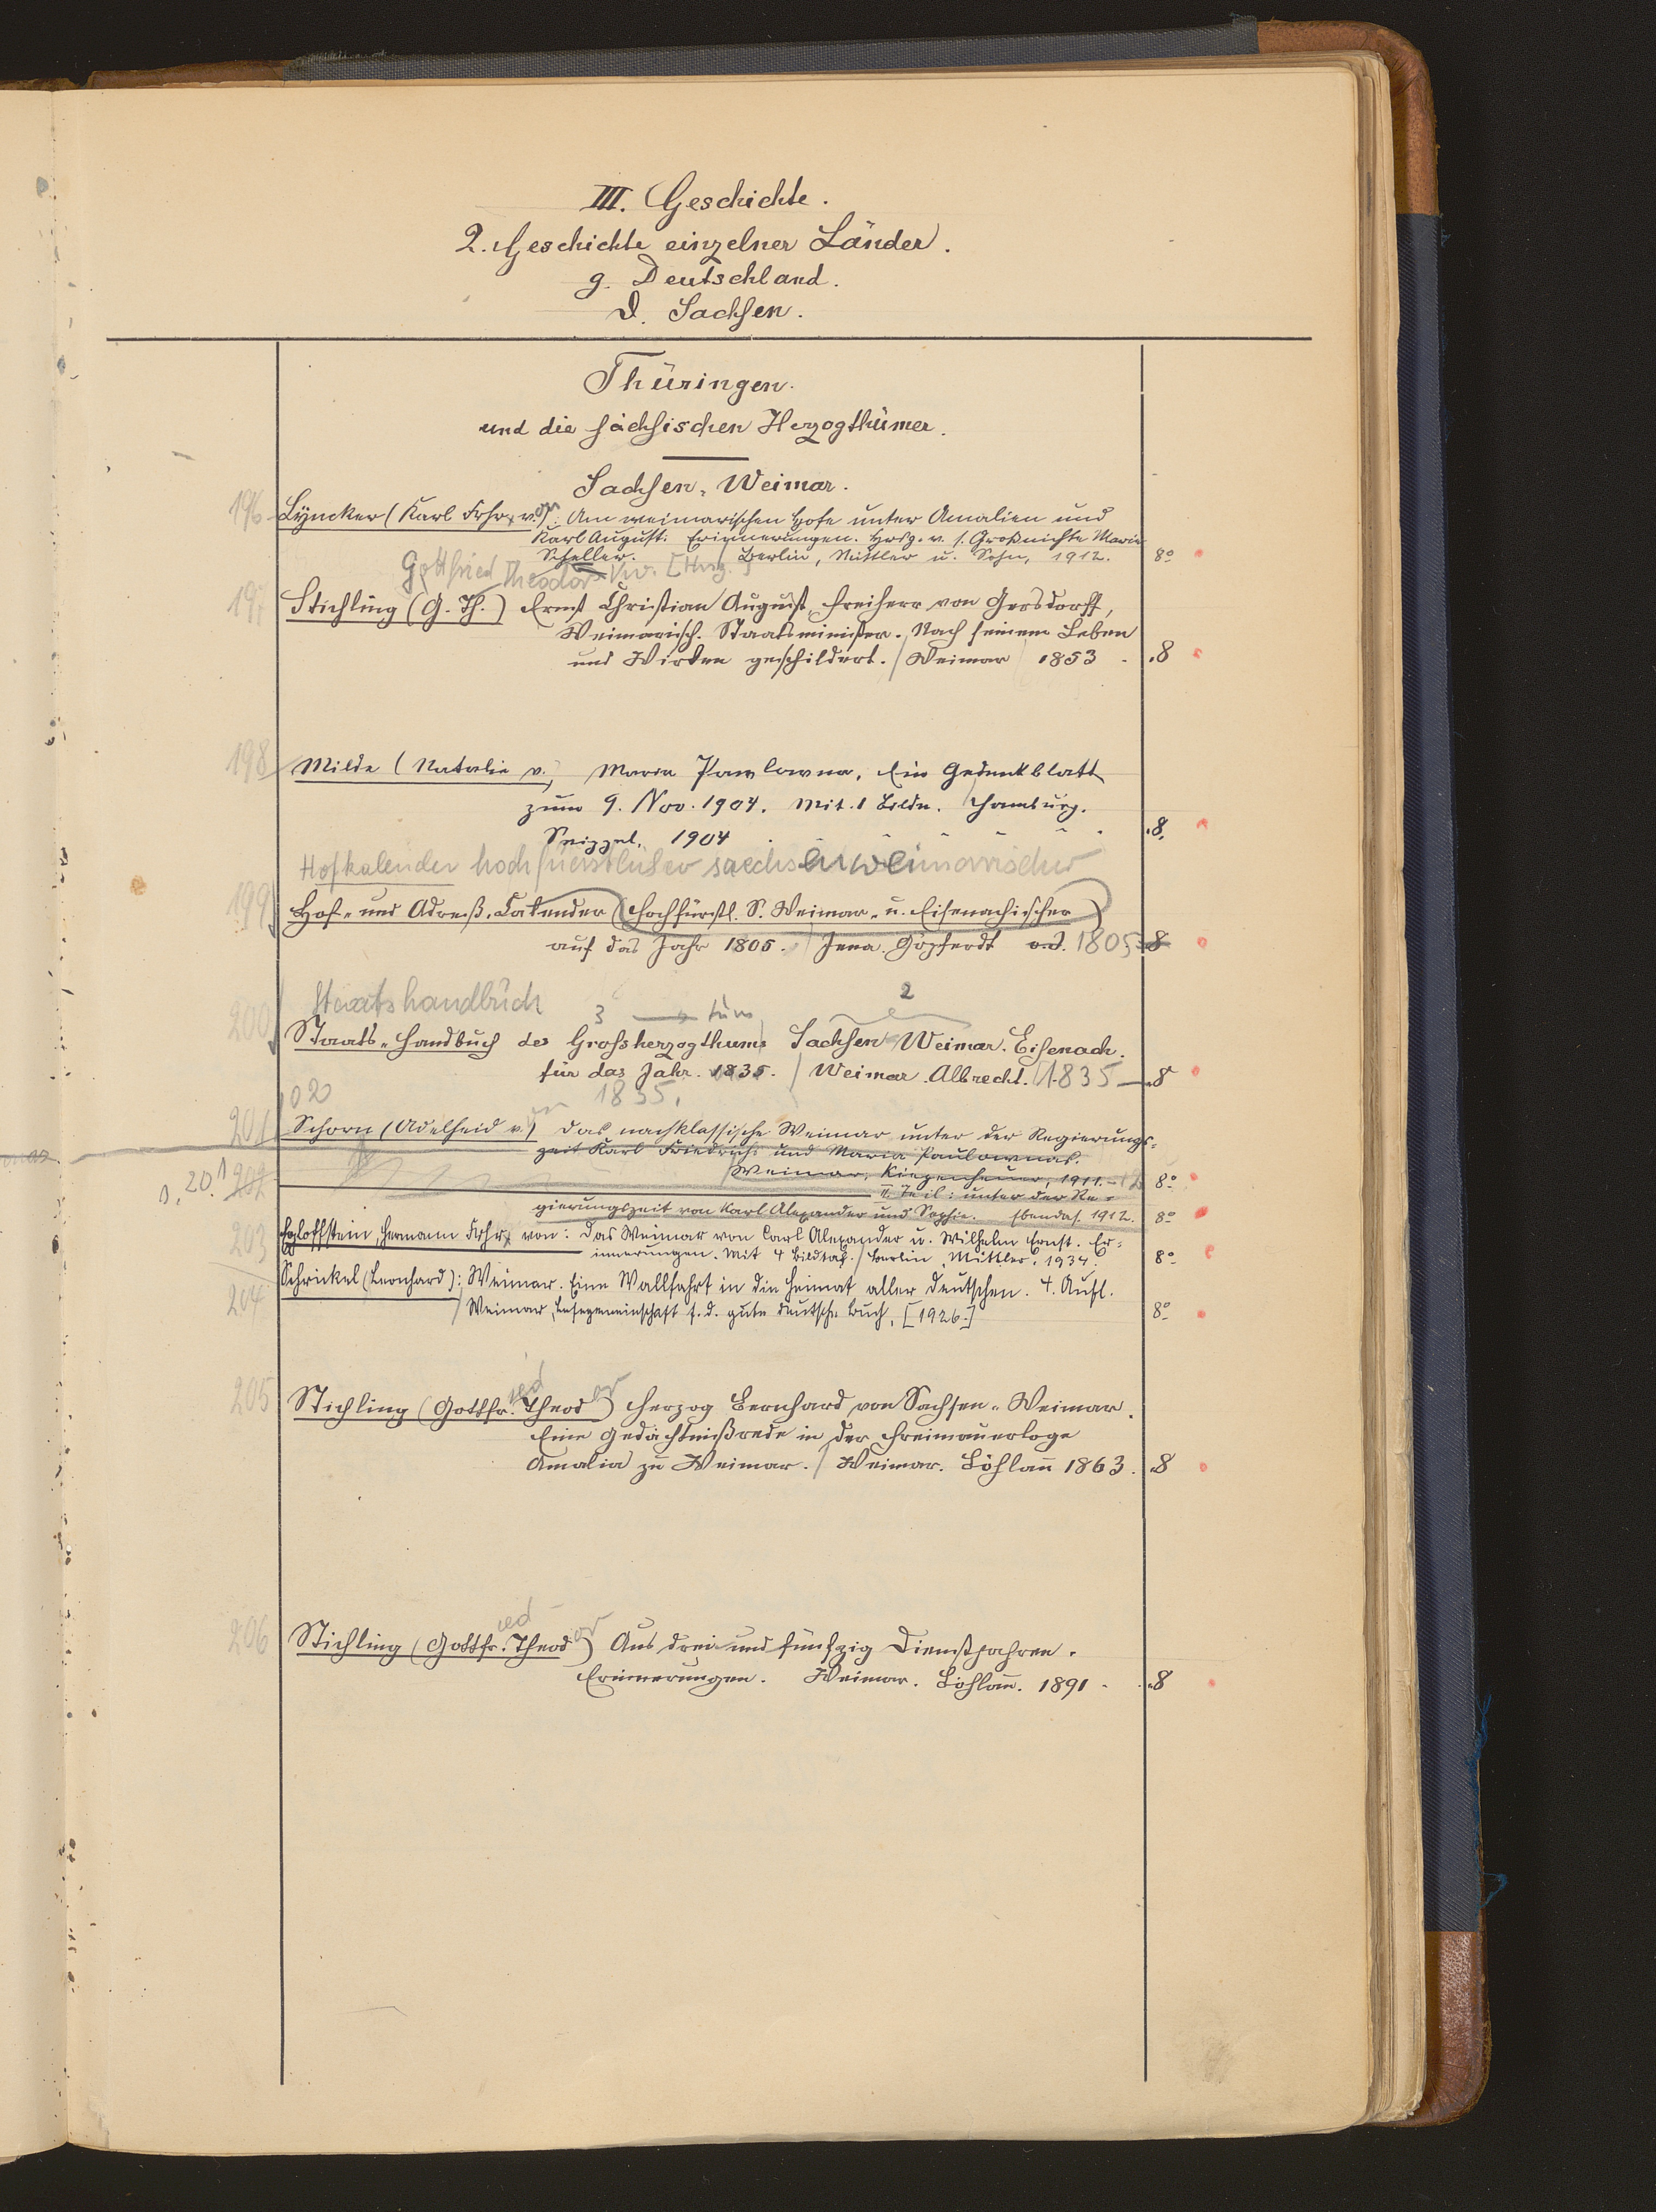 III. Geschichte.
2. Geschichte einzelner Länder.
g. Deutschland.
D. Sachsen.
Thüringen.
und die sächsischen Herzogthümer.
Sachsen-Weimar.
196 Lyncker (Karl Frhr. v.on) Am weimarischen Hofe unter Amalien und
Karl August. Erinnerungen. Hrsg. v. s. Großnichte Marie
Scheller. / Berlin, Mittler u. Sohn, 1912. 8º
Gottfried Theodor [Hrsg.]
197 Stichling (G. Th.) Ernst Christian August, Freiherr von Gersdorff,
Weimarisch. Staatsminister. Nach seinem Leben
und Wirken geschildert. / Weimar 1853 . 8
198 Milde (Natalie v.) Maria Pawlowna, Ein Gedenkblatt
zum 9. Nov. 1904. Mit 1 Bildn. / Hamburg.
1904 . 8.
Hofkalender hochfuerstlicher saechsen weimarischer
199 Hof- und Adreß-Calender (Hochfürstl. S. Weimar- u. Eisenachischer)
auf das Jahr 1805. / Jena. Göpferdt o.J. 1805 8
Staatshandbuch
3 tum 2
200 Staats-Handbuch des Grossherzogthums Sachsen Weimar-Eisenach.
für das Jahr 1835. / Weimar. Albrecht. 1835 - 8
1835.
020
201 Schorn (Adelheid v.on) Das nachklassische Weimar unter der Regierungs-
zeit Karl Friedrichs und Maria Paulownas.
/ Weimar, Kiepenheuer, 1911.-12 8º
s. 20.1 202
II. Teil: unter der Re-
gierungszeit von Karl Alexander und Sophie. Ebendas. 1912. 8º
203 Egloffstein, Hermann Frhr. von: Das Weimar von Carl Alexander u. Wilhelm Ernst. Er-
innerungen. Mit 4 Bildtaf. / Berlin, Mittler, 1934. 8º
204 Schrickel (Leonhard): Weimar. Eine Wallfahrt in die Heimat aller Deutschen. 4. Aufl.
/ Weimar, Lesegemeinschaft f. d. gute deutsche Buch, [1926.] 8º
205 Stichling (Gottfr.ied Theodor) Herzog Bernhard von Sachsen-Weimar.
Eine Gedächtnißrede in der Freimaurerloge
Amalia zu Weimar. / Weimar. Böhlau 1863. 8
206 Stichling (Gottfr.ied Theodor) Aus drei und fünfzig Dienstjahren.
Erinnerungen. Weimar. Böhlau. 1891 . 8